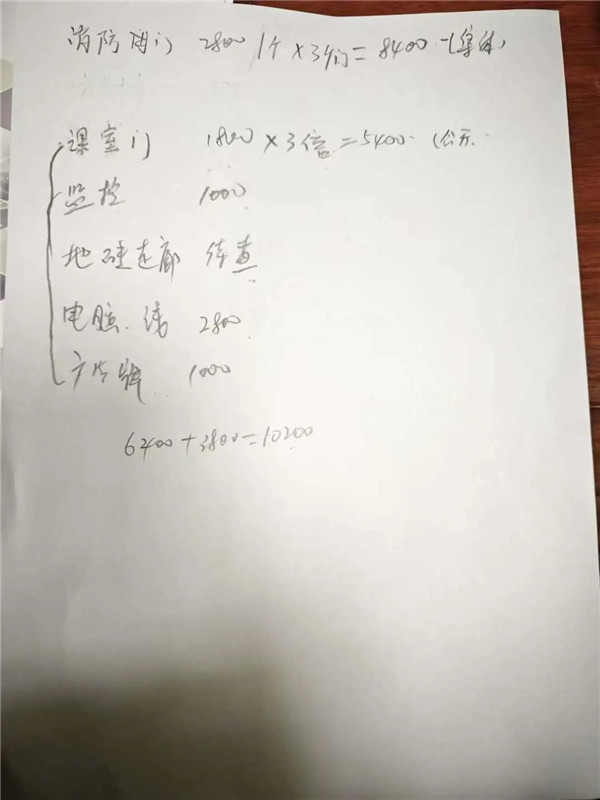 消防门 2800 1个×3个门=8400
课室门 1800×3倍=5400 (公开
监控 1000
地 连廊 待查
电脑.线 2800
广告牌 1000
6400+3800=10200